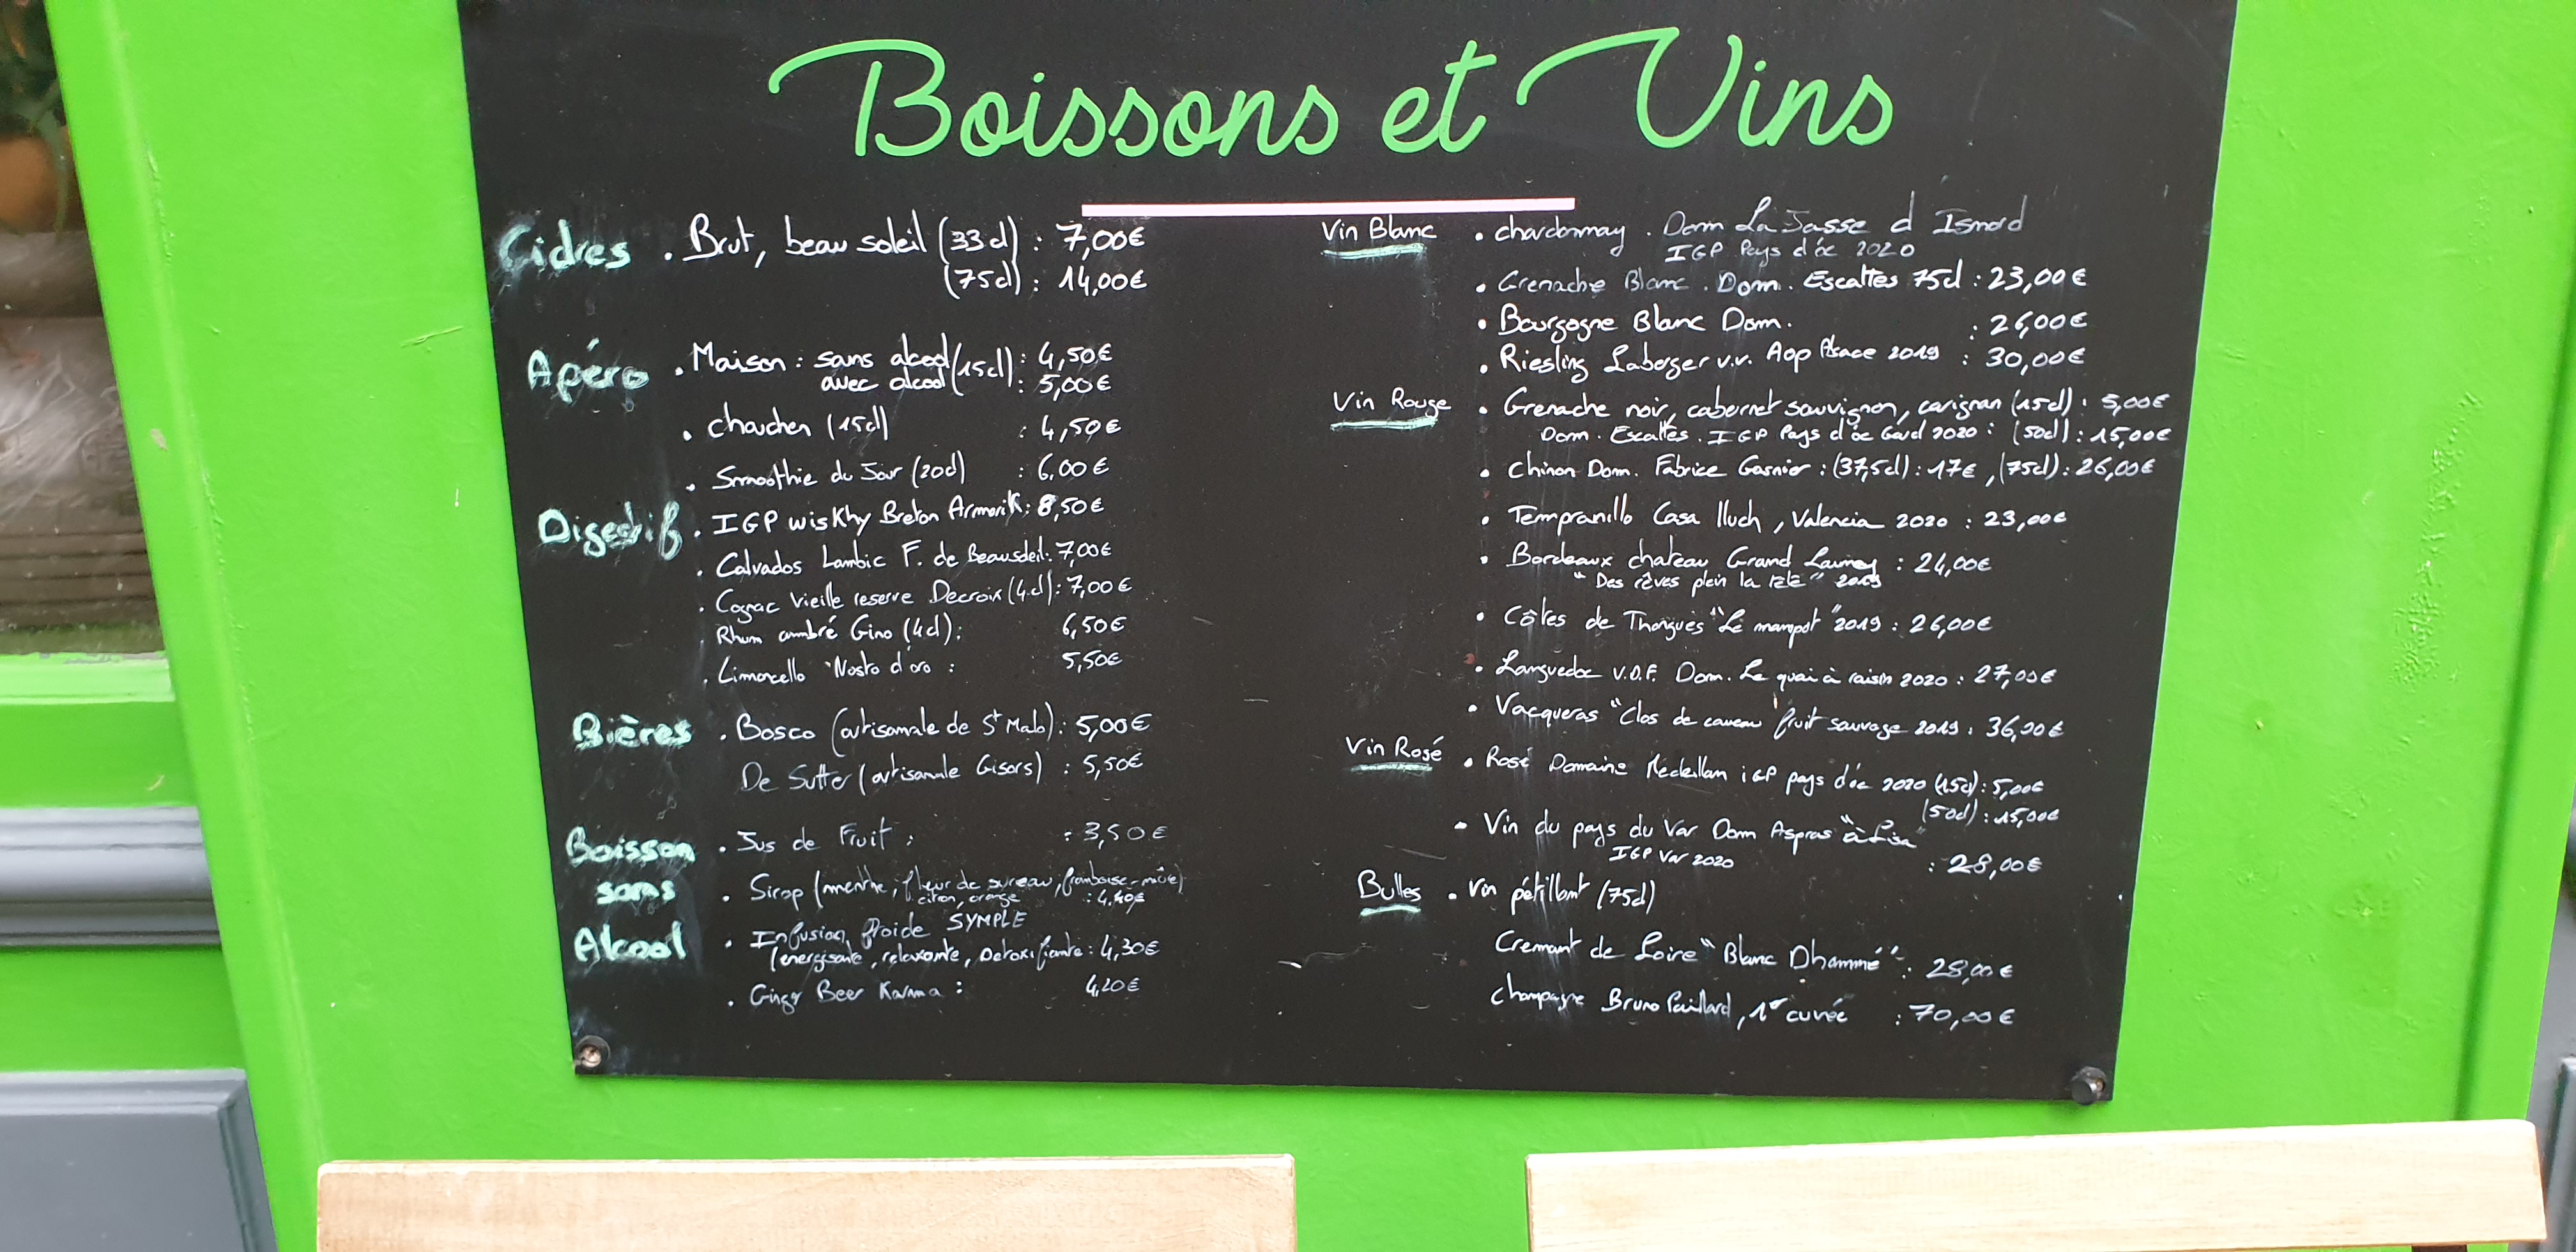 Boissons et Vins
Cidres . Brut, beau soleil (33cl) : 7,00€
(75cl) : 14,00€
Apéro . Maison : sans alcool (15cl) : 4,50€
avec alcool : 5,00€
. chouchen (15cl) : 4,50€
. Smoothie du Jour (20cl) : 6,00€
Digestif . IGP wisKhy Breton Armorik : 8,50€
. Calvados Lambic F. de Beausoleil : 7,00€
. Cognac Vieille reserve Decroix (4cl) : 7,00€
. Rhum ambré Gino (4cl) : 6,50€
. Limoncello Nosto d'oro : 5,50€
Bières . Bosco (artisanale de St Malo) : 5,00€
De Sutter (artisanale Gisors) : 5,50€
Boisson . Jus de Fruit : : 3,50€
sans . Sirop (menthe, fleur de sureau, framboise-mûre)
citron, orange : 4,40€
Alcool . Infusion froide SYMPLE
(energisante, relaxante, Detoxifiante : 4,30€
. Ginger Beer Karma : 4,20€
Vin Blanc . chardonnay . Dom La Jasse d Isnard
IGP Pays d'óc 2020
. Grenache Blanc . Dom . Escattes 75cl : 23,00€
. Bourgogne Blanc Dom. : 26,00€
. Riesling v.v. Aop Alsace 2019 : 30,00€
Vin Rouge . Grenache noir, cabernet sauvignon, carignan (15cl) : 5,00€
Dom . Escattes . IGP Pays d'óc Gard 2020 : (50cl) : 15,00€
. Chinon Dom. Fabrice Gasnier : (37,5cl) : 17€, (75cl) : 26,00€
. Tempranillo Casa lluch, Valencia 2020 : 23,00€
. Bordeaux chateau Grand Launay : 24,00€
"Des rêves plein la tête" 2019
. Côtes de Thongues "Le mampot" 2019 : 26,00€
. Languedoc V.D.F. Dom. Le quai à raisin 2020 : 27,00€
. Vacqueras "Clos de caveau" fruit sauvage 2019 : 36,00€
Vin Rosé . Rosé Domaine iGP pays d'óc 2020 (15cl) : 5,00€
(50cl) : 15,00€
. Vin du pays du Var Dom Aspras "à Lisa"
IGP Var 2020 : 28,00€
Bulles . Vin pétillant (75cl)
Cremant de Loire "Blanc Dhammé" : 28,00€
Champagne Bruno Paillard, 1er cuvée : 70,00€